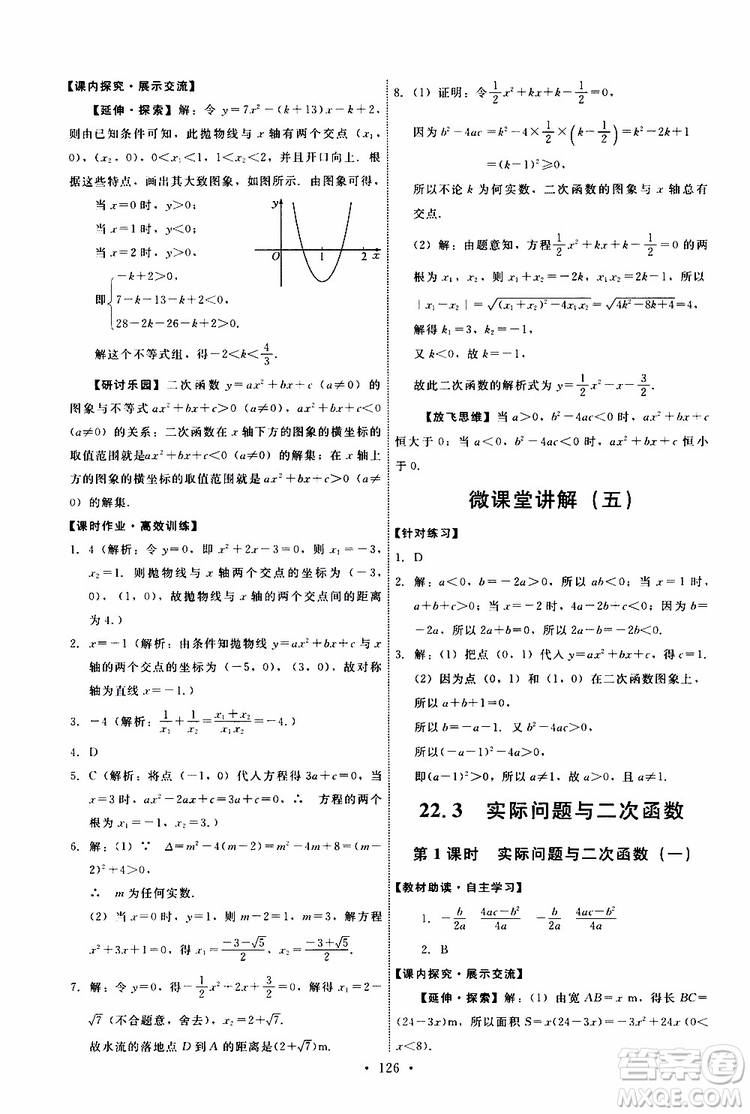 【课内探究·展示交流】
【延伸·探索】解：令 y=7x²-(k+13)x-k+2，
则由已知条件可知，此抛物线与 x 轴有两个交点（x₁，
0），（x₂，0），0<x₁<1，1<x₂<2，并且开口向上．根
据这些特点，画出其大致图象，如图所示．由图象可得
当 x=0 时，y>0；
当 x=1 时，y<0；
当 x=2 时，y>0．
即{-k+2>0,
7-k-13-k+2<0,
28-2k-26-k+2>0.
y
O 1 2 x
解这个不等式组，得-2<k<4/3．
【研讨乐园】二次函数 y=ax²+bx+c（a≠0）的
图象与不等式 ax²+bx+c>0（a≠0），ax²+bx+c<0
（a≠0）的关系：二次函数在 x 轴下方的图象的横坐标的
取值范围就是 ax²+bx+c<0（a≠0）的解集；在 x 轴上
方的图象的横坐标的取值范围就是 ax²+bx+c>0（a≠
0）的解集．
【课时作业·高效训练】
1. 4（解析：令 y=0，即 x²+2x-3=0，解得 x₁=-3，
x₂=1．则抛物线与 x 轴两个交点的坐标为（-3，
0），（1，0），故抛物线与 x 轴的两个交点间的距离
为 4．）
2. x=-1（解析：由条件知抛物线 y=ax²+bx+c 与 x
轴的两个交点的坐标为（-5，0），（3，0），故对称
轴为直线 x=-1．）
3. -4（解析：1/x₁+1/x₂=(x₁+x₂)/(x₁x₂)=-4．）
4. D
5. C（解析：将点（-1，0）代入方程得 3a+c=0，
x=0 时，y=c<0，则 -3a<0，a>0，∴ 方程的两个
根为 x₁=-1，x₂=3．）
6. 解：（1）∵ Δ=m²-4(m-2)=m²-4m+8=(m-
2)²+4>0，
∴ m 为任何实数．
（2）当 x=0 时，y=1，则 m-2=1，m=3，方程为
x²+3x+1=0，解得 x₁=(-3-√5)/2，x₂=(-3+√5)/2．
7. 解：令 y=0，得-1/2x²+2x+3/2=0，x₁=2+√7，x₂=2-
√7（不合题意，舍去），
故水流的落地点 D 到 A 的距离为（2+√7）m．
8.（1）证明：令1/2x²+kx+k-1/2=0，
因为 b²-4ac=k²-4×1/2×(k-1/2)=k²-2k+1
=(k-1)²≥0，
所以不论 k 为何实数，二次函数的图象与 x 轴总有
交点．
（2）解：由题意知，方程1/2x²+kx+k-1/2=0 的两
根为 x₁，x₂，则 x₁+x₂=-2k，x₁x₂=2k-1，所以
|x₁-x₂|=√((x₁+x₂)²-4x₁x₂)=√(4k²-8k+4)=4，
解得 k₁=3，k₂=-1．
又 k<0，所以 k=-1．
故此二次函数的解析式为 y=1/2x²-x-3/2．
【放飞思维】当 a>0，b²-4ac<0 时，ax²+bx+c
恒大于 0；当 a<0，b²-4ac<0 时，ax²+bx+c 恒小
于 0．
微课堂讲解（五）
【针对练习】
1. D
2. 解：a<0，b=-2a>0，所以 ab<0；当 x=1 时，
a+b+c>0；当 x=2 时，4a+2b+c>0．
3. 解：（1）把点（0，1）代入 y=ax²+bx+c，得 c=1．
（2）因为点（1，0）在二次函数图象上，
所以 a+b+1=0．
所以 b=-a-1．又由题意知 a>0，
所以（-a-1）²-4a>0．
即（a-1）²>0，所以 a>0 且 a≠1．
22.3 实际问题与二次函数
第 1 课时 实际问题与二次函数（一）
【教材助读·自主学习】
1. -b/2a (4ac-b²)/4a -b/2a (4ac-b²)/4a
2. B
【课内探究·展示交流】
【延伸·探索】解：（1）由宽 AB=x m，得长 BC=
（24-3x）m，所以面积 S=x（24-3x）=-3x²+24x（0<
x<8）．
126
答案圈
MXQE.COM